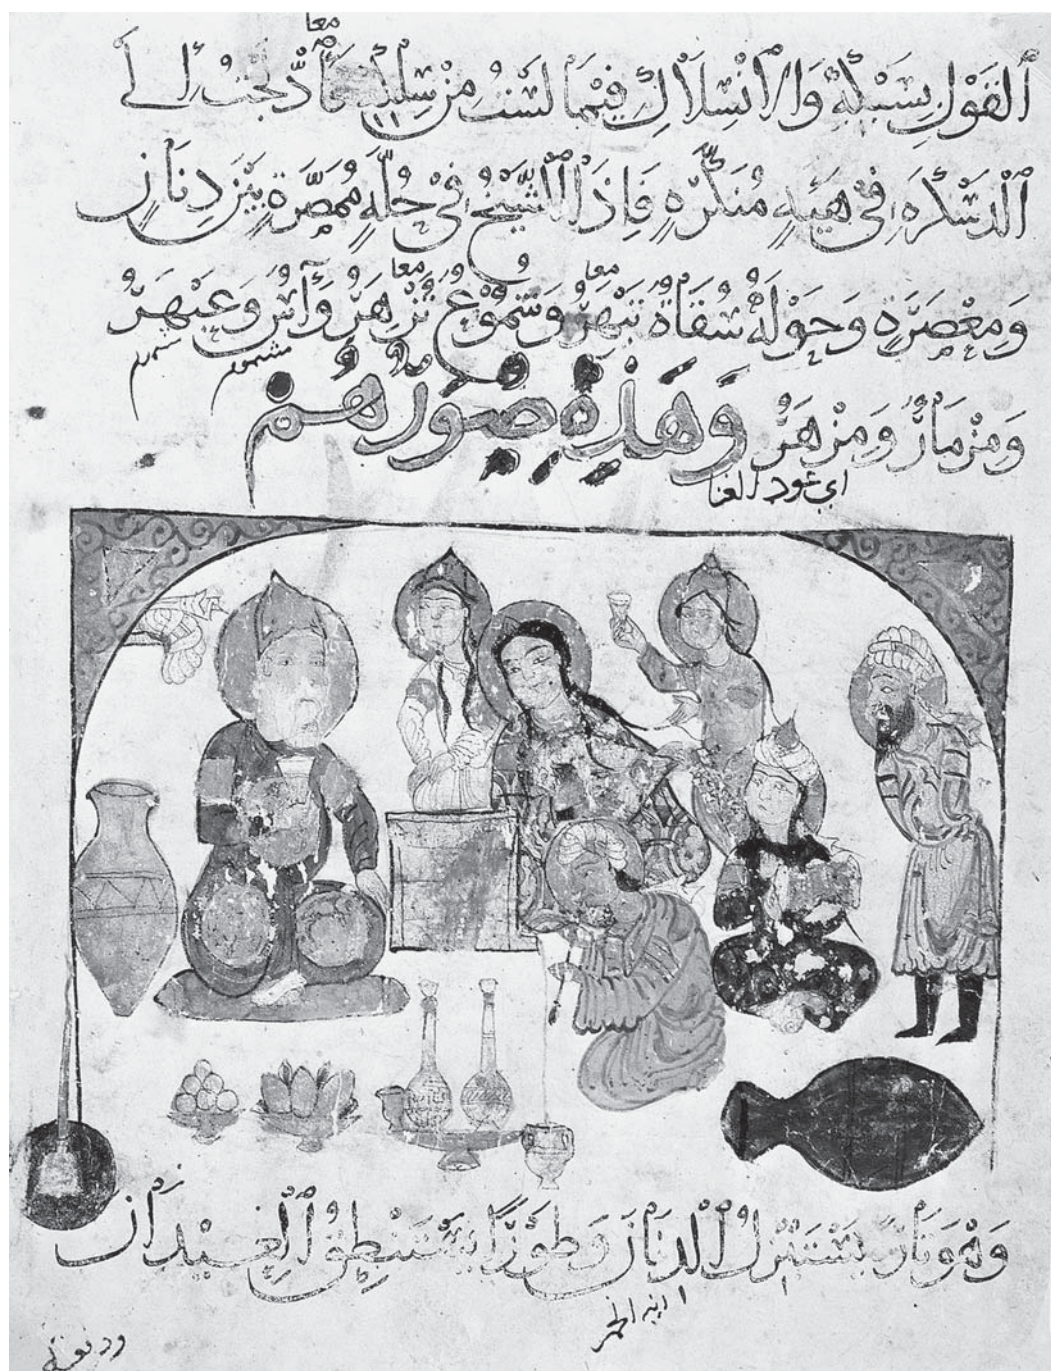 معا
القَوْلِ بِسَبْكِهِ وَالانْسِلَاكِ فِيْمَا لَسْتُ مِنْ سِلْكِهِ فَادَّلَجْتُ إِلَى
الدَسْكَرَةِ فِي هَيْئَةٍ مُنَكَّرَةٍ فَإِذَا الشَّيْخُ فِي حُلَّةٍ مُمَصَّرَةٍ بَيْنَ دِنَانٍ
معا معا
وَمِعْصَرَةٍ وَحَوْلَهُ سُقَاةٌ تَبْهَرُ وَشُمُوْعٌ تُزْهِرُ وَآسٌ وَعَبْهَرٌ
مشموم
وَمِزْمَارٌ وَمِزْهَرٌ وَهَذِهِ صُوَرُهُمْ
اي عود الغنا
وَهُوَ تَارَةً يَسْتَبْزِلُ الدِنَانَ وَطَوْرًا يَسْتَنْطِقُ العِيْدَانَ
الخمر